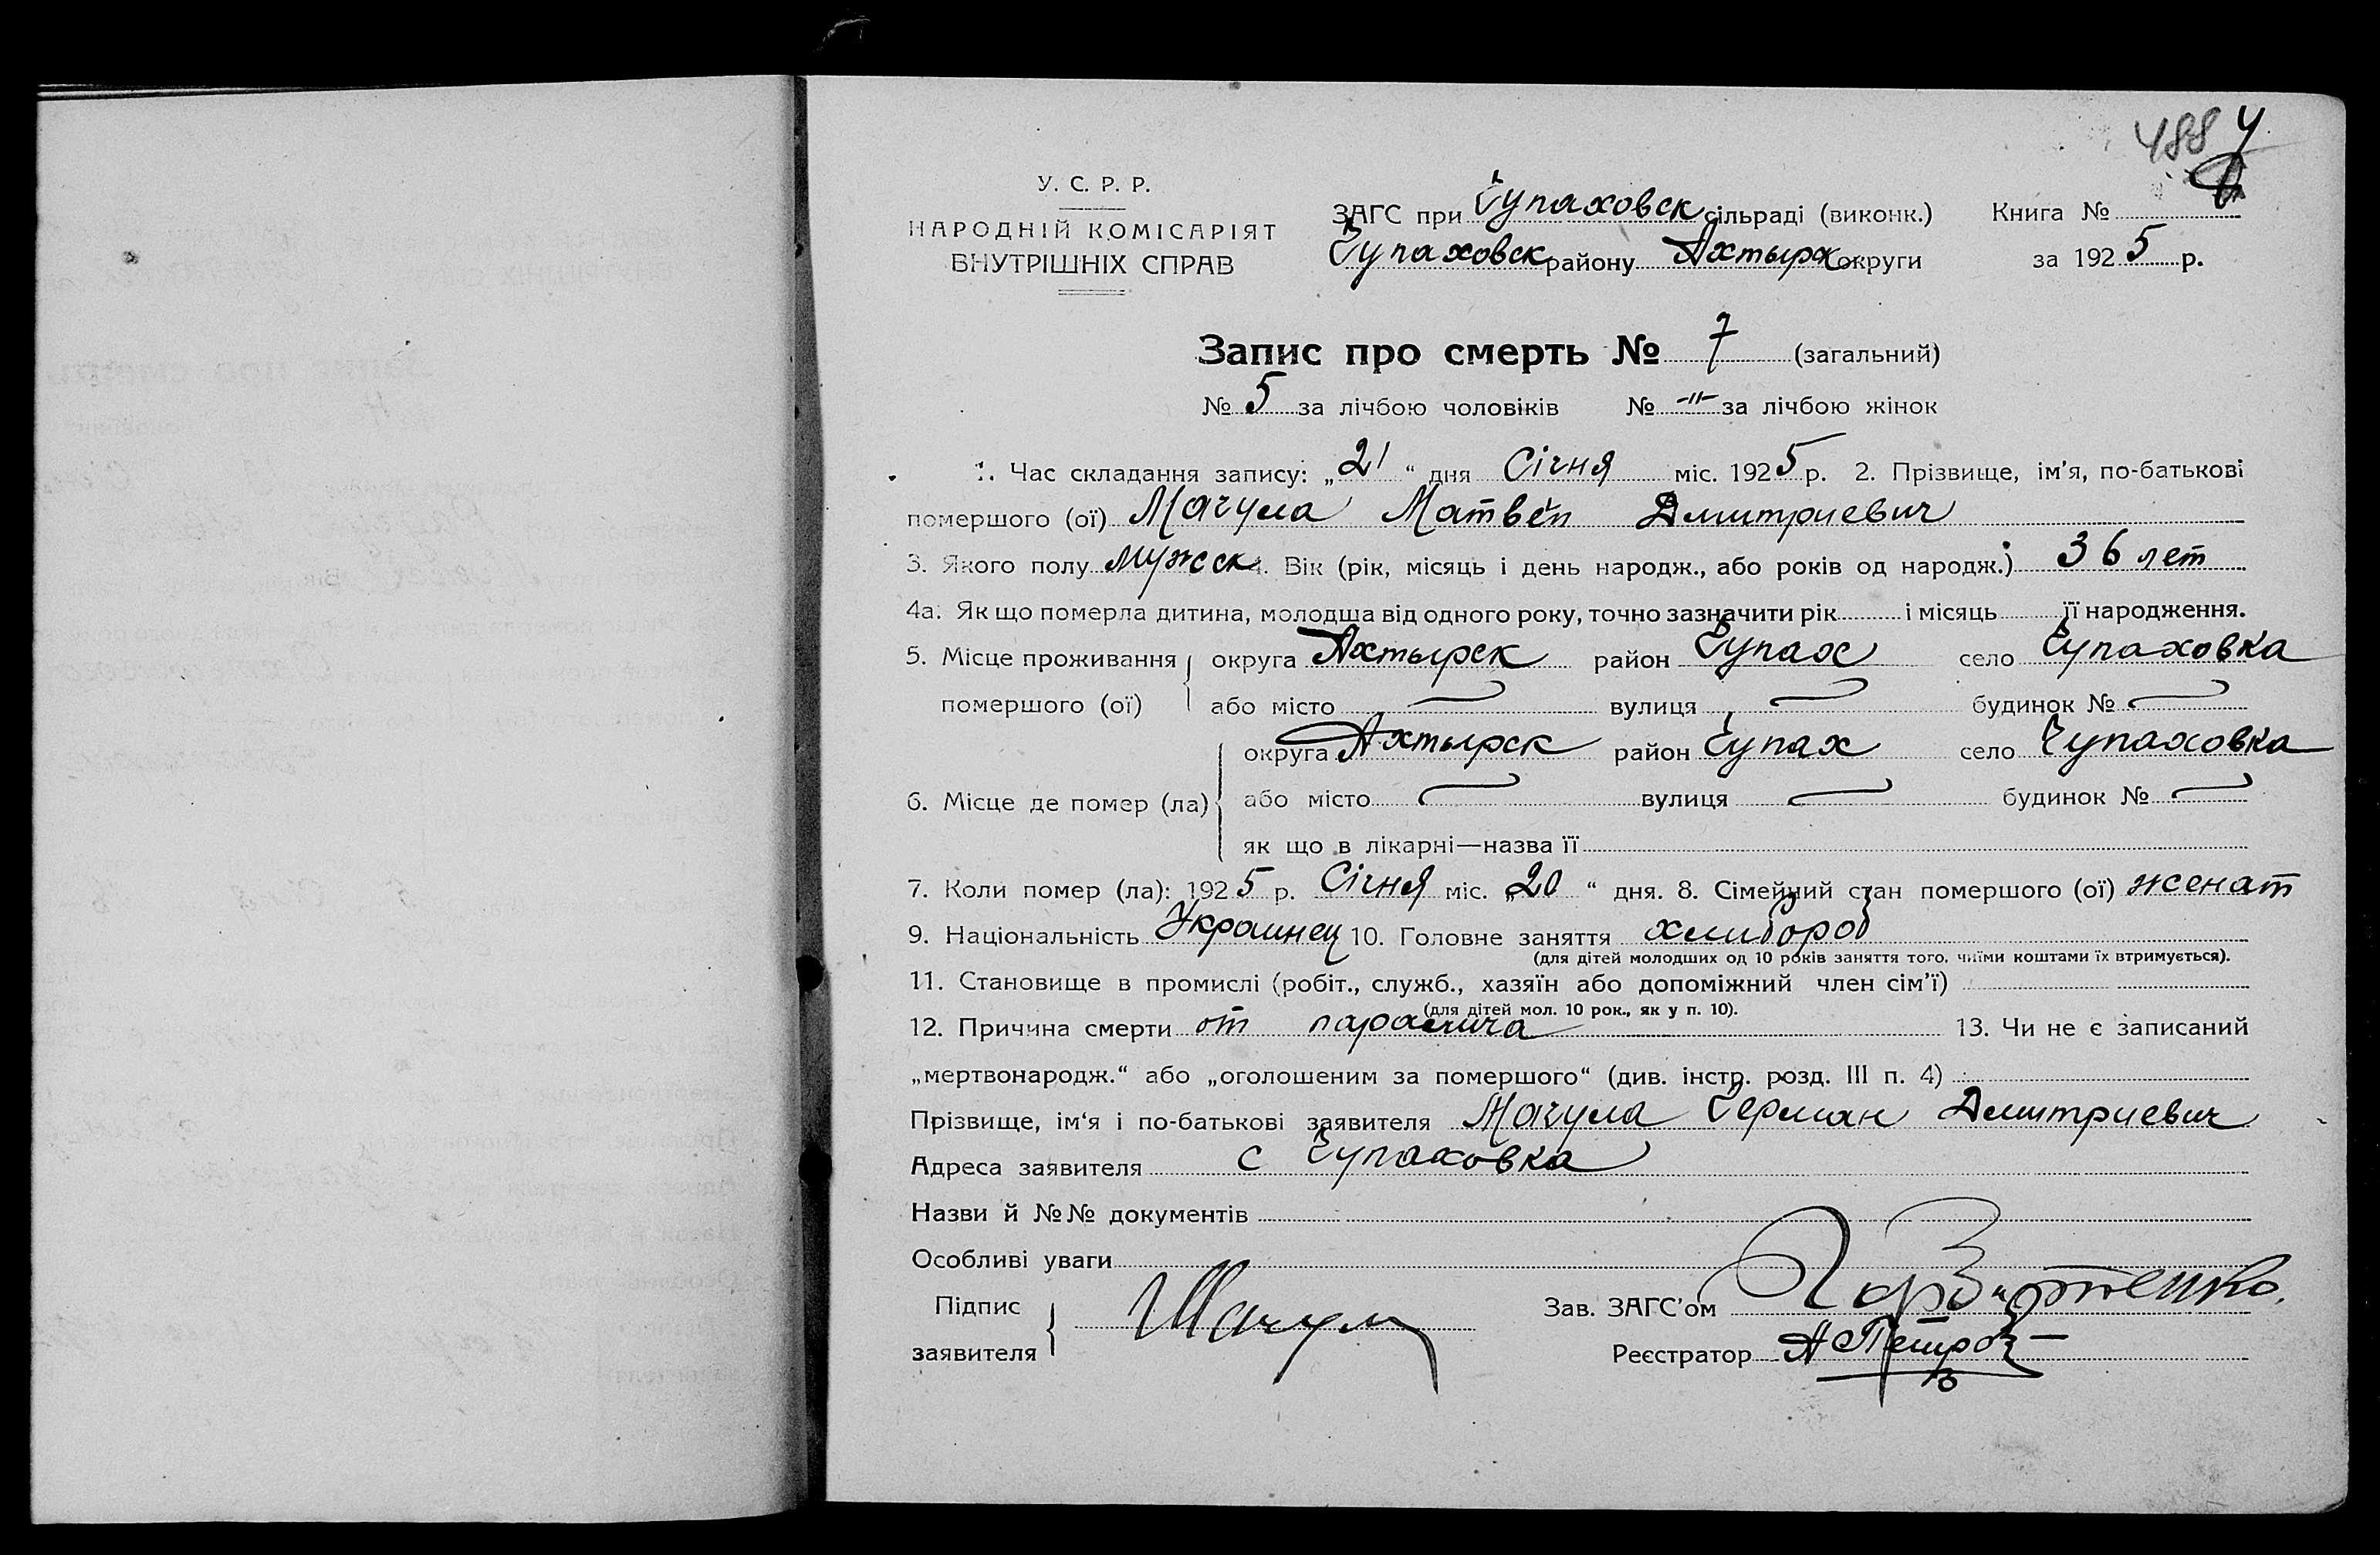 488 4
У. С. Р. Р.
НАРОДНІЙ КОМІСАРІЯТ
ВНУТРІШНІХ СПРАВ
ЗАГС при Чупаховск сільраді (виконк.) Книга №
Чупаховск району Ахтырск округи за 1925 р.
Запис про смерть № 7 (загальний)
№ 5 за лічбою чоловіків № -"- за лічбою жінок
1. Час складання запису: „21“ дня Січня міс. 1925 р. 2. Прізвище, ім'я, по-батькові
помершого (ої) Мачула Матвей Дмитриевич
3. Якого полу мужск 4. Вік (рік, місяць і день народж., або років од народж.) 36 лет
4а. Як що померла дитина, молодша від одного року, точно зазначити рік і місяць її народження.
5. Місце проживання округа Ахтырск район Чупах село Чупаховка
помершого (ої) або місто — вулиця — будинок № —
округа Ахтырск район Чупах село Чупаховка
6. Місце де помер (ла) або місто — вулиця — будинок № —
як що в лікарні—назва її
7. Коли помер (ла): 1925 р. Січня міс. „20“ дня. 8. Сімейний стан помершого (ої) женат
9. Національність Украинец 10. Головне заняття хлибороб
(для дітей молодших од 10 років заняття того, чиїми коштами їх втримується).
11. Становище в промислі (робіт., служб., хазяїн або допоміжний член сім'ї)
(для дітей мол. 10 рок., як у п. 10).
12. Причина смерти от паралича 13. Чи не є записаний
„мертвонародж.“ або „оголошеним за помершого“ (див. інстр. розд. III п. 4)
Прізвище, ім'я і по-батькові заявителя Мачула Герман Дмитриевич
Адреса заявителя с Чупаховка
Назви й №№ документів
Особливі уваги
Підпис
заявителя Мачула
Зав. ЗАГС'ом
Реєстратор А Петров